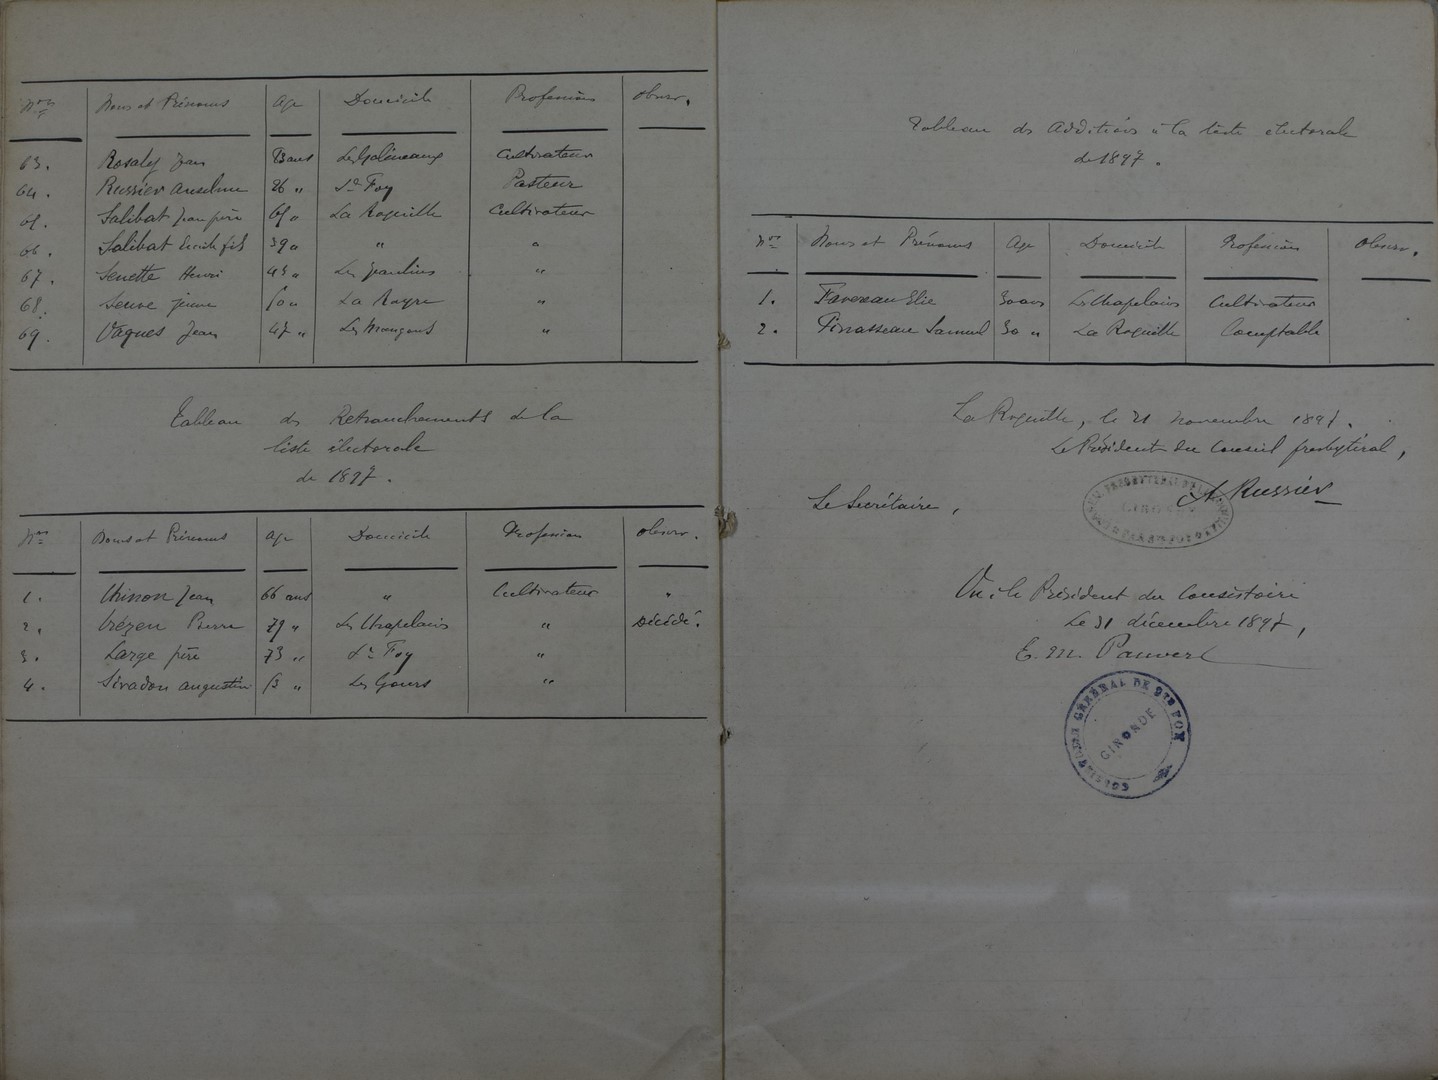 Nos Noms et Prénoms Age Domicile Profession Observ.
63. Rosaly Jean ans Cultivateur
64. Russier Anselme 26 " Ste Foy Pasteur
65. Salibat Jean père 65 " La Roquille Cultivateur
66. Salibat fils 39 " " "
67. Senette Henri 43 " Les "
68. Seuve jeune 50 " La Rayre "
69. Vagues Jean 47 " Les Mangons "
Tableau des Retranchements de la
liste électorale
de 1897.
Nos Noms et Prénoms Age Domicile Profession Observ.
1. Chinon Jean 66 ans " Cultivateur "
2. Pierre 79 " Les Chapelains " Décédé.
3. Large père 73 " Ste Foy "
4. Sivadon Augustin " Les Gours "
Tableau des Additions à la liste électorale
de 1897.
Nos Noms et Prénoms Age Domicile Profession Observ.
1. Favereau Elie 30 ans Les Chapelains Cultivateur
2. Pinasseau Samuel 30 " La Roquille Comptable
La Roquille, le 21 novembre 1897.
Le Président du Conseil presbytéral,
Le Secrétaire, A. Russier
Vu : le Président du Consistoire
Le 31 décembre 1897,
E. M. Pauvert
CONSISTOIRE GÉNÉRAL DE STE FOY
GIRONDE